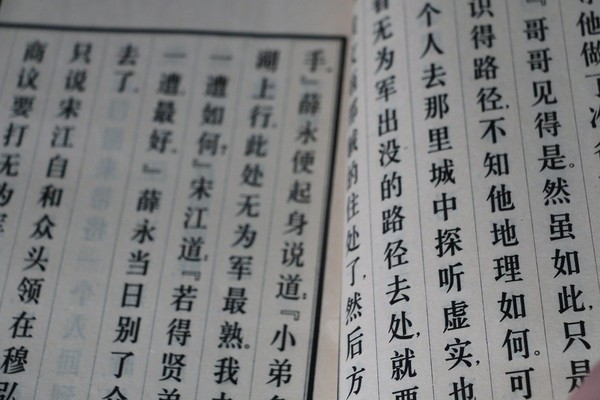 他做
『哥哥见得是。然虽如此,只是
识得路径,不知他地理如何。可
个人去那里城中探听虚实,也
看无为军出没的路径去处,就要
的住处了,然后方
手。』薛永便起身说道:『小弟多
湖上行,此处无为军最熟。我去
一遭如何?』宋江道:『若得贤弟
一遭,最好。』薛永当日别了众
去了。
只说宋江自和众头领在穆弘
商议要打无为军